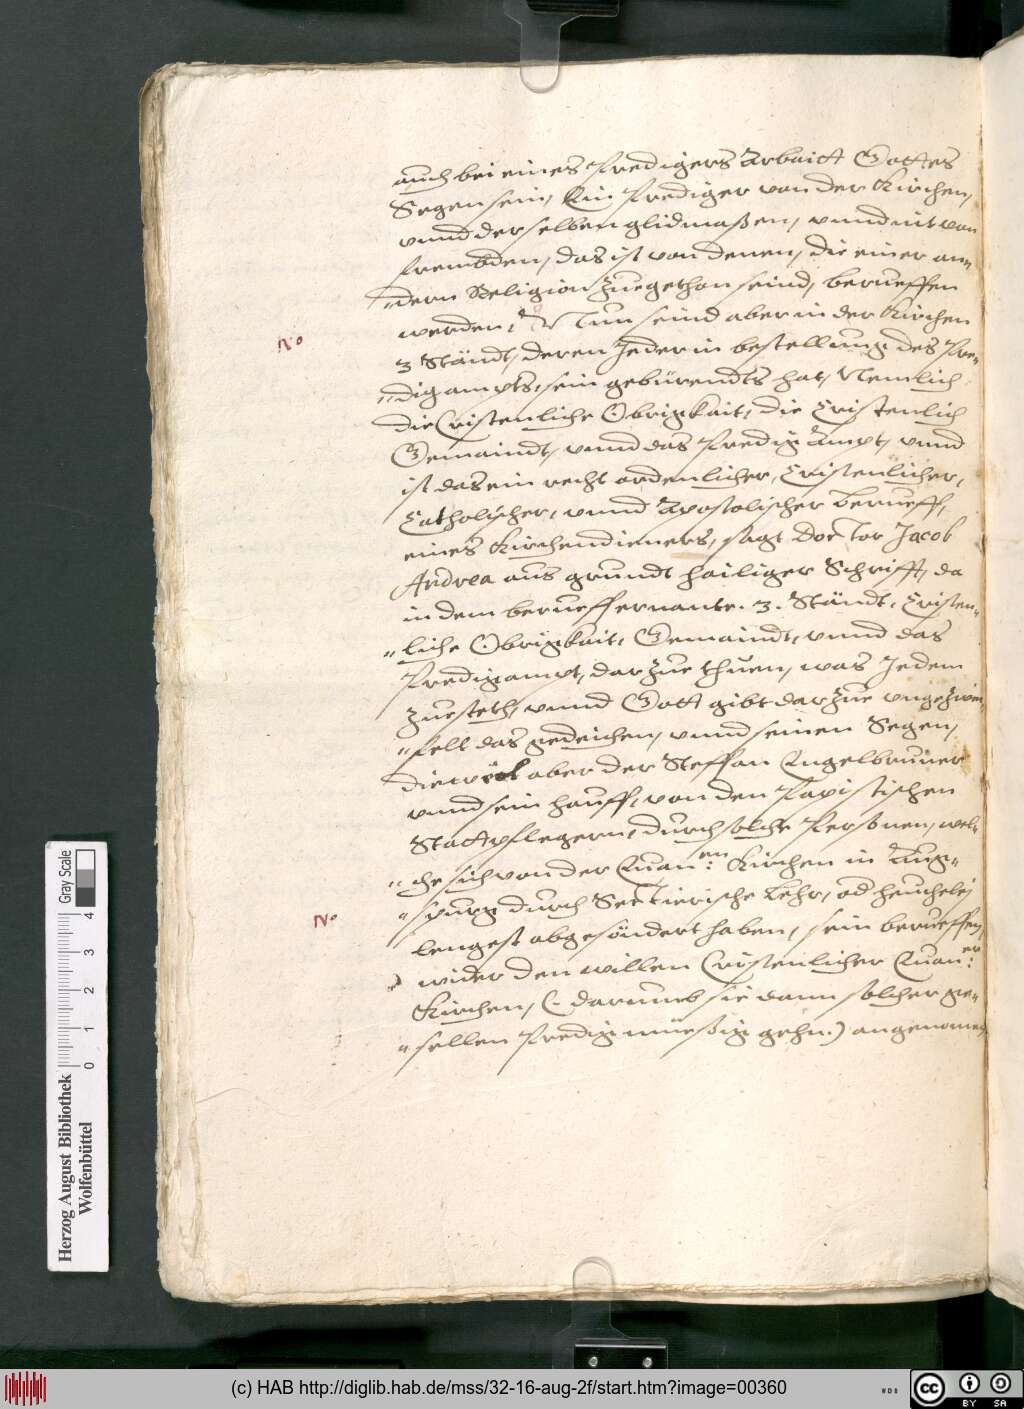 auch bei eines Predigers Arbaitt Gottes
Segen sein, Ein Prediger von der Kirchen,
vnnd derselben glidmaßen, vnnd nit von
frembden, das ist von denen, die einer an„
„dern Religion zuegethon seind, berueffen
werden, Nun seind aber in der Kirchen
No
3 Ständt, deren Jeder in bestellung des Pre„
„digampts, sein gebürendts hat, Nemlich
die Cristenliche Obrigkait, die Cristenlich
Gemaindt, vnnd das Predig Ampt, vnnd
ist das ein recht ordenlicher, Cristenlicher,
Catholischer, vnnd Apostolischer berueff,
eines Kirchendieners, sagt Doctor Jacob
Andrea aus grundt hailiger Schrifft, da
in dem berueff ernante. 3. Ständt, Cristen„
„liche Obrigkait, Gemaindt, vnnd das
Predigampt, darzue thuen, was Jedem
zuesteth, vnnd Gott gibt darzue vngezwei„
„felt das gedeichen, vnnd seinen Segen,
die weil aber der Steffan Angelbruner
vnnd sein hauff, von den Papistischen
Stattpflegern, durch solche Personen, wel„
„che sich von der Euan:en Kirchen in Aug„
„spurg durch Sectierische Lehr, od heuchelei
No
lengest abgesöndert haben, sein berueffen,
wider den willen Cristenlicher Euan:er
Kirchen, (darumb sie dann solcher ge„
„sellen Predig müeßig gehn.) angenomen
Herzog August Bibliothek
Wolfenbüttel
Gray Scale
0 1 2 3 4
(c) HAB http://diglib.hab.de/mss/32-16-aug-2f/start.htm?image=00360
WDB
CC BY SA